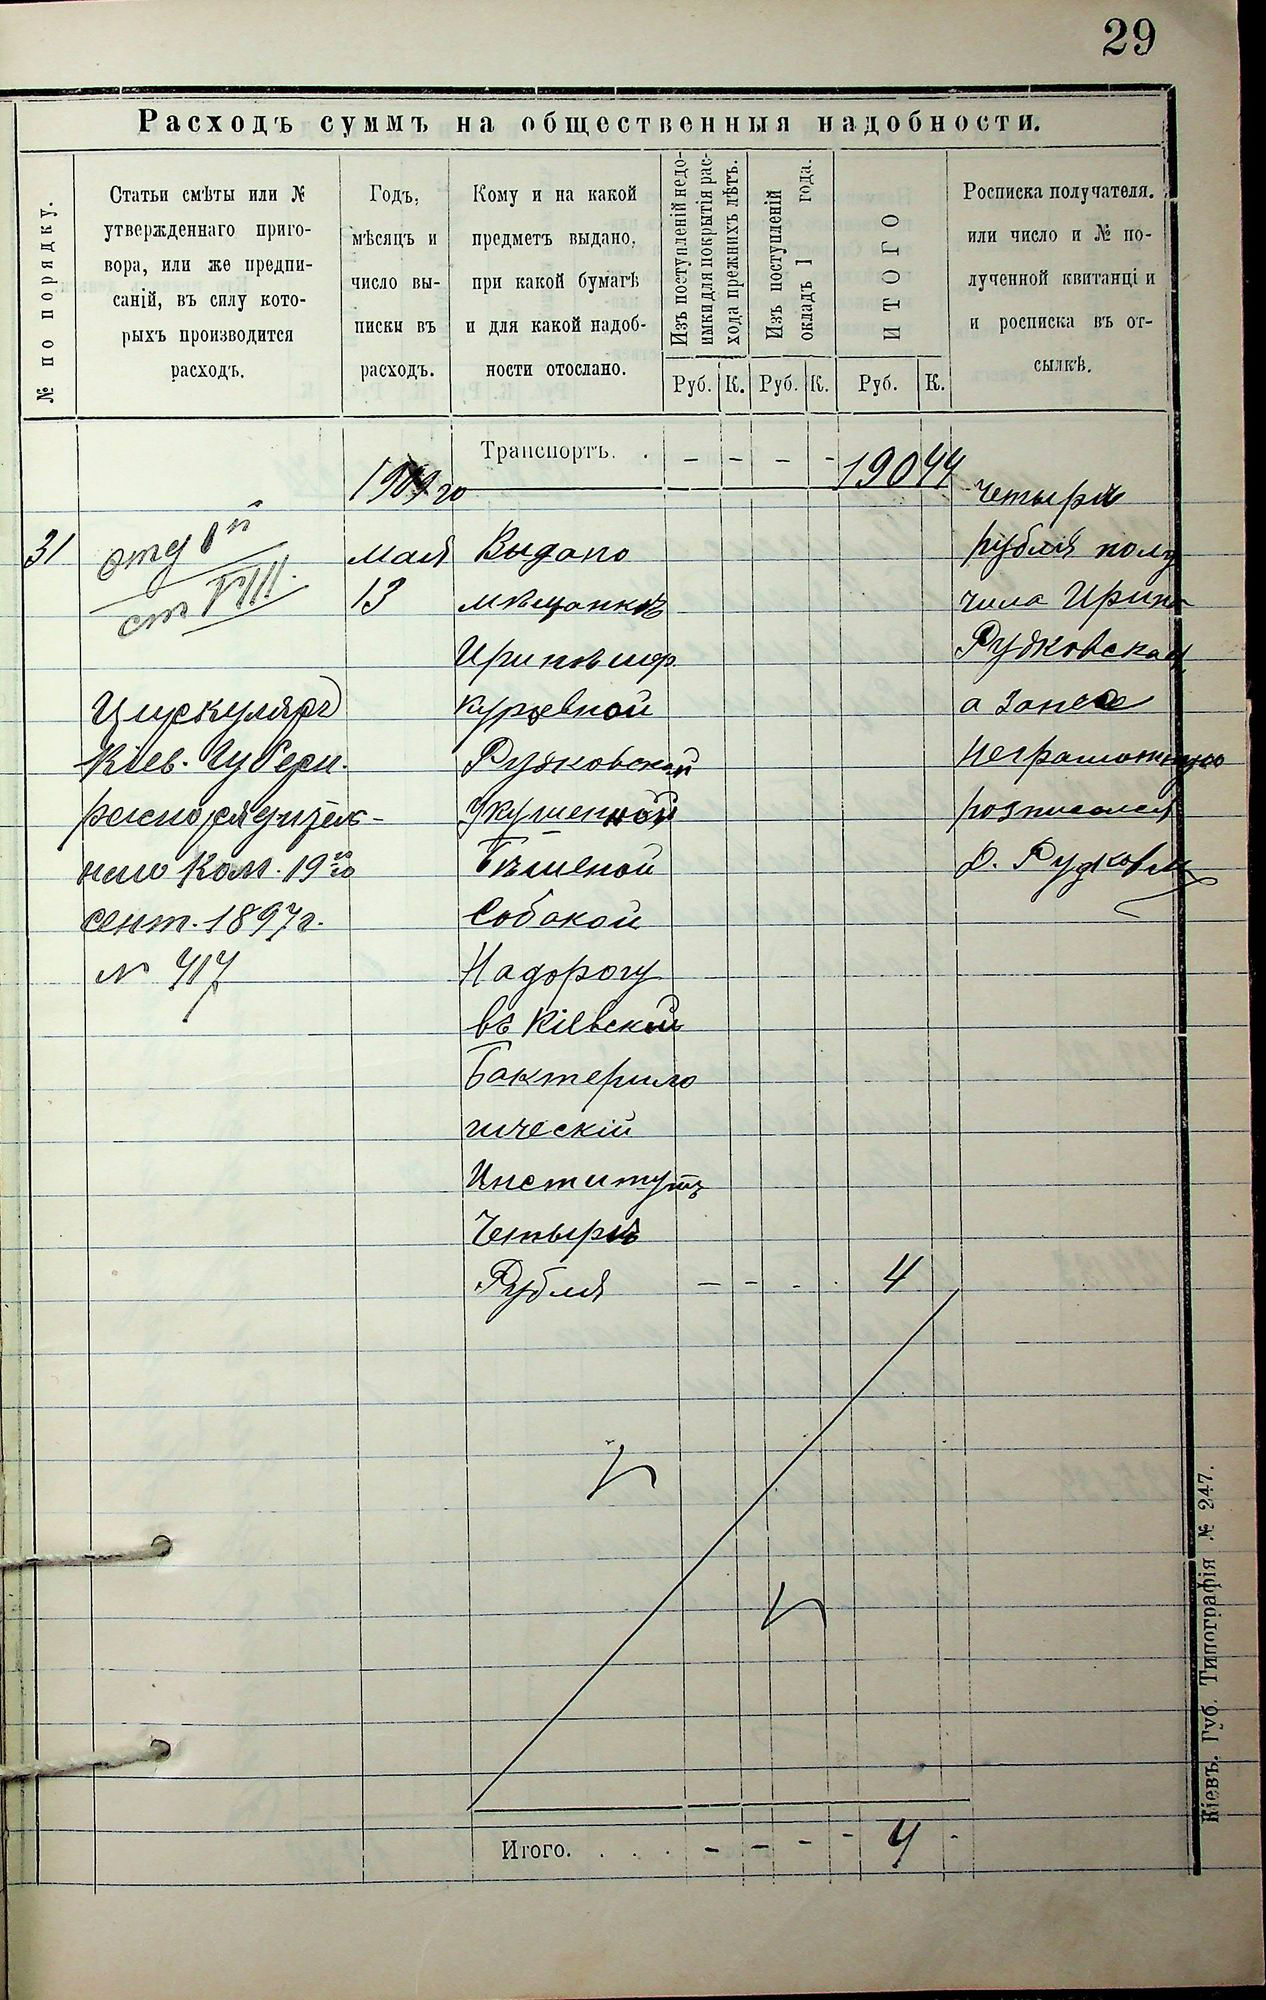 29
Расходъ суммъ на общественныя надобности.
№ по порядку.
Статьи смѣты или №
утвержденнаго приго-
вора, или же предпи-
саній, въ силу кото-
рыхъ производится
расходъ.
Годъ,
мѣсяцъ и
число вы-
писки въ
расходъ.
Кому и на какой
предметъ выдано,
при какой бумагѣ
и для какой надоб-
ности отослано.
Изъ поступленій недо-
имки для покрытія рас-
хода прежнихъ лѣтъ.
Изъ поступленій
окладъ 1 года.
ИТОГО
Росписка получателя.
или число и № по-
лученной квитанціи
и росписка въ от-
сылкѣ.
Руб. К. Руб. К. Руб. К.
Транспортъ. . - - - - 190 44
31
отд 1й
ст VIII.
Циркуляръ
Кіев. Губерн.
распорядител-
наго Ком. 19го
сент. 1897 г.
№ 717
го
мая
13
Выдано
мѣщанкѣ
Иринѣ
Рудковской
укушенной
Бѣшеной
Собакой
На дорогу
въ Кіевскій
Бактерило
гическій
Институтъ
Четыри
Рубля - - - - 4
Четыри
рубля полу
чила Ирина
Рудковская
а за нее
неграмотную
розписался
Итого. . . . - - - - 4 -
Кіевъ. Губ. Типографія № 247.